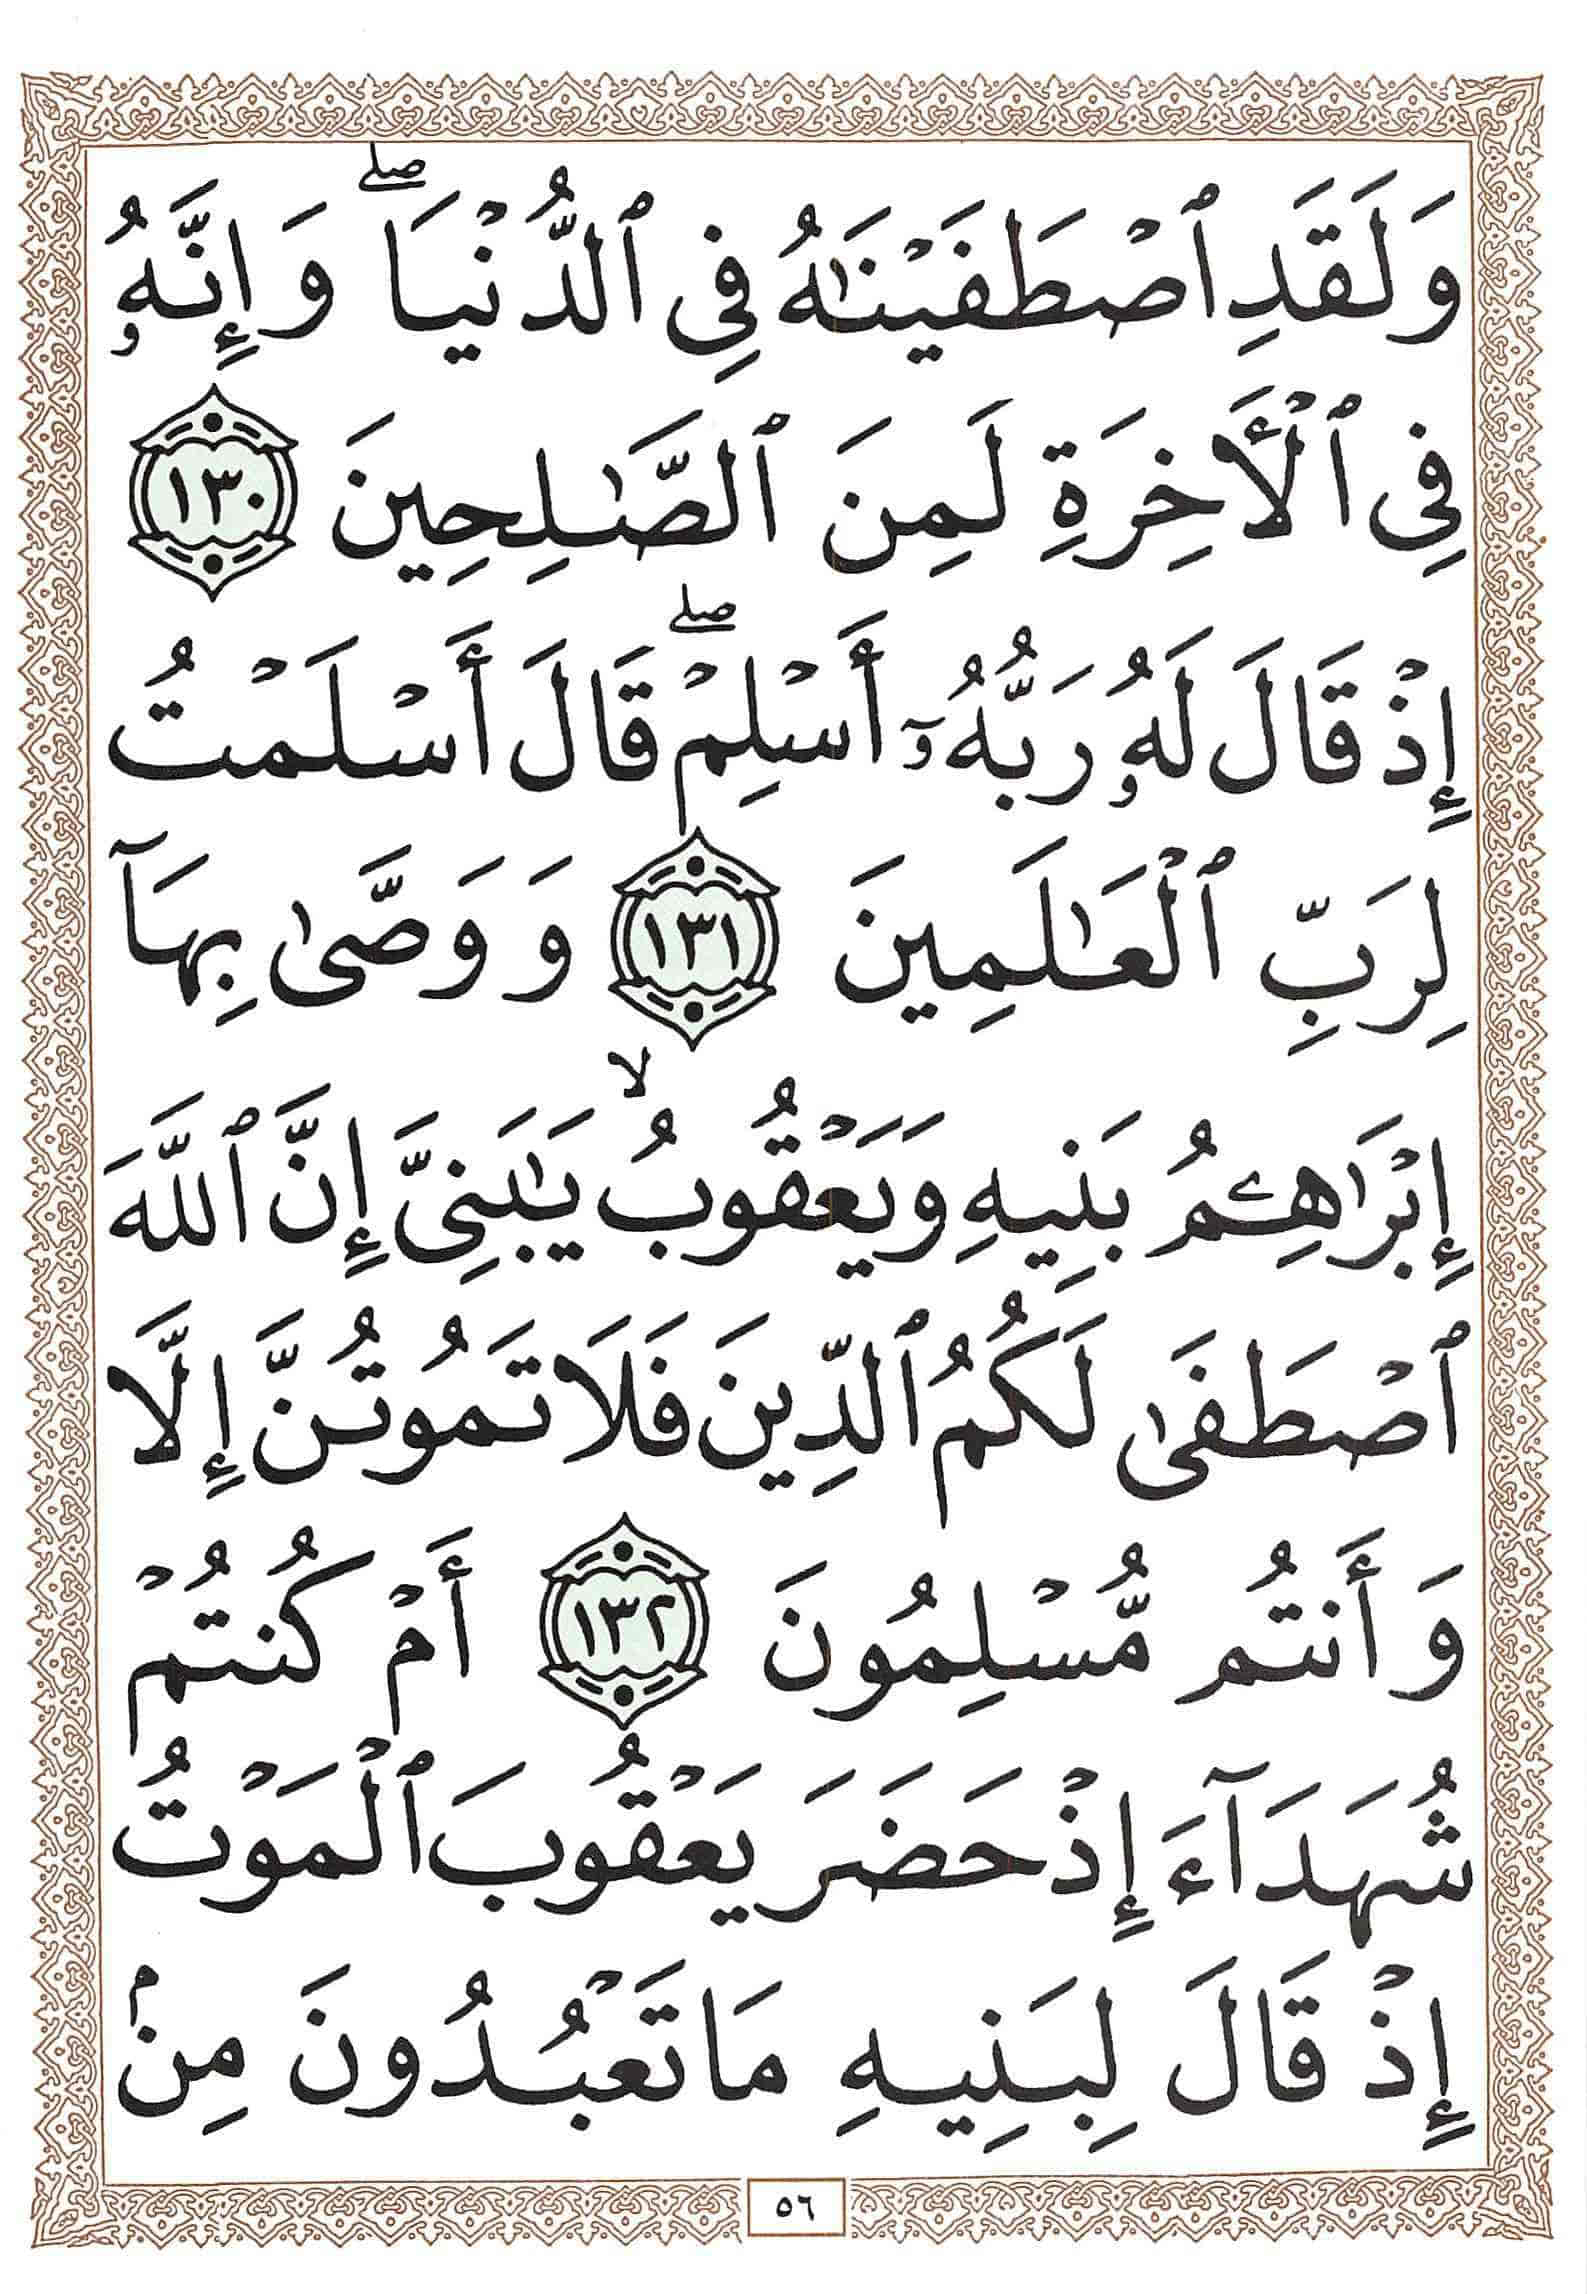 وَلَقَدِ ٱصْطَفَيْنَٰهُ فِى ٱلدُّنْيَا ۖ وَإِنَّهُۥ
فِى ٱلْأَخِرَةِ لَمِنَ ٱلصَّٰلِحِينَ ١٣٠
إِذْ قَالَ لَهُۥ رَبُّهُۥٓ أَسْلِمْ ۖ قَالَ أَسْلَمْتُ
لِرَبِّ ٱلْعَٰلَمِينَ ١٣١ وَ وَصَّىٰ بِهَآ
إِبْرَٰهِـۧمُ بَنِيهِ وَيَعْقُوبُ ۙ يَٰبَنِىَّ إِنَّ ٱللَّهَ
ٱصْطَفَىٰ لَكُمُ ٱلدِّينَ فَلَا تَمُوتُنَّ إِلَّا
وَأَنتُم مُّسْلِمُونَ ١٣٢ أَمْ كُنتُمْ
شُهَدَآءَ إِذْ حَضَرَ يَعْقُوبَ ٱلْمَوْتُ
إِذْ قَالَ لِبَنِيهِ مَا تَعْبُدُونَ مِنۢ
٥٦